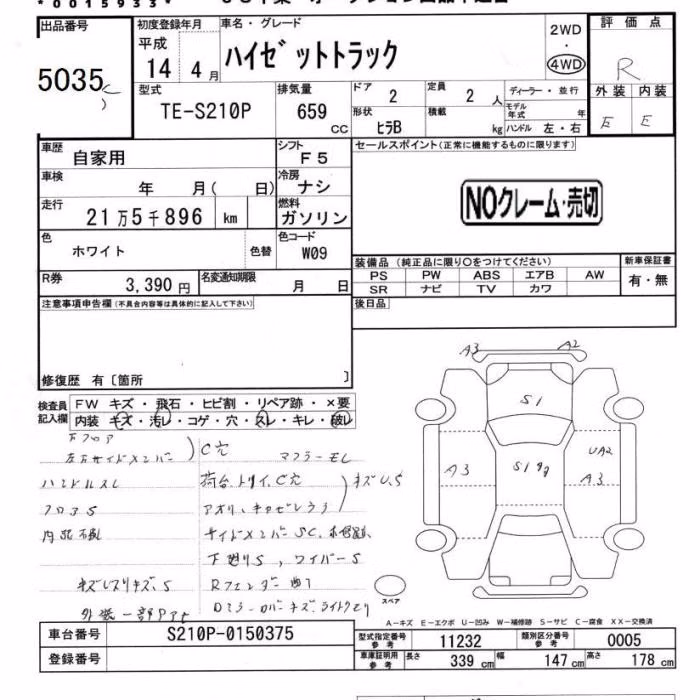 *0015933*
出品番号
5035
初度登録年月
平成
14年 4月
車名・グレード
ハイゼットトラック
2WD
・
4WD
評価点
R
外装 内装
E E
型式
TE-S210P
排気量
659
cc
ドア
2
定員
2 人
ディーラー・並行
モデル年式 年
形状
ヒラB
積載
kg
ハンドル 左・右
車歴
自家用
シフト
F5
セールスポイント(正常に機能するものに限ります)
車検
年 月( 日)
冷房
ナシ
NOクレーム・売切
走行
21万5千896 km
燃料
ガソリン
色
ホワイト
色替
色コード
W09
装備品(純正品に限り○をつけてください)
新車保証書
PS PW ABS エアB AW
有・無
SR ナビ TV カワ
R券
3,390円
名変通知期限
月 日
後日品
注意事項申告欄(不具合内容等は具体的に記入して下さい)
修復歴 有〔箇所 〕
検査員記入欄
FW キズ・飛石・ヒビ割・リペア跡・×要
内装 キズ・汚レ・コゲ・穴・スレ・キレ・破レ
下フロア
左右サイドメンバー
C穴
マフラーモレ
ハンドルスレ
荷台、トリイ、C穴
キズU.S
フロアS
内張不良
サイドメンバーSC
下廻りS、ワイパーS
A3 A2
S1
A3
UA2
A3
スペア
A-キズ E-エクボ U-凹み W-補修跡 S-サビ C-腐食 XX-交換済
車台番号
S210P-0150375
登録番号
型式指定番号 参考
11232
類別区分番号 参考
0005
車庫証明用 参考
長さ 339 cm
幅 147 cm
高さ 178 cm